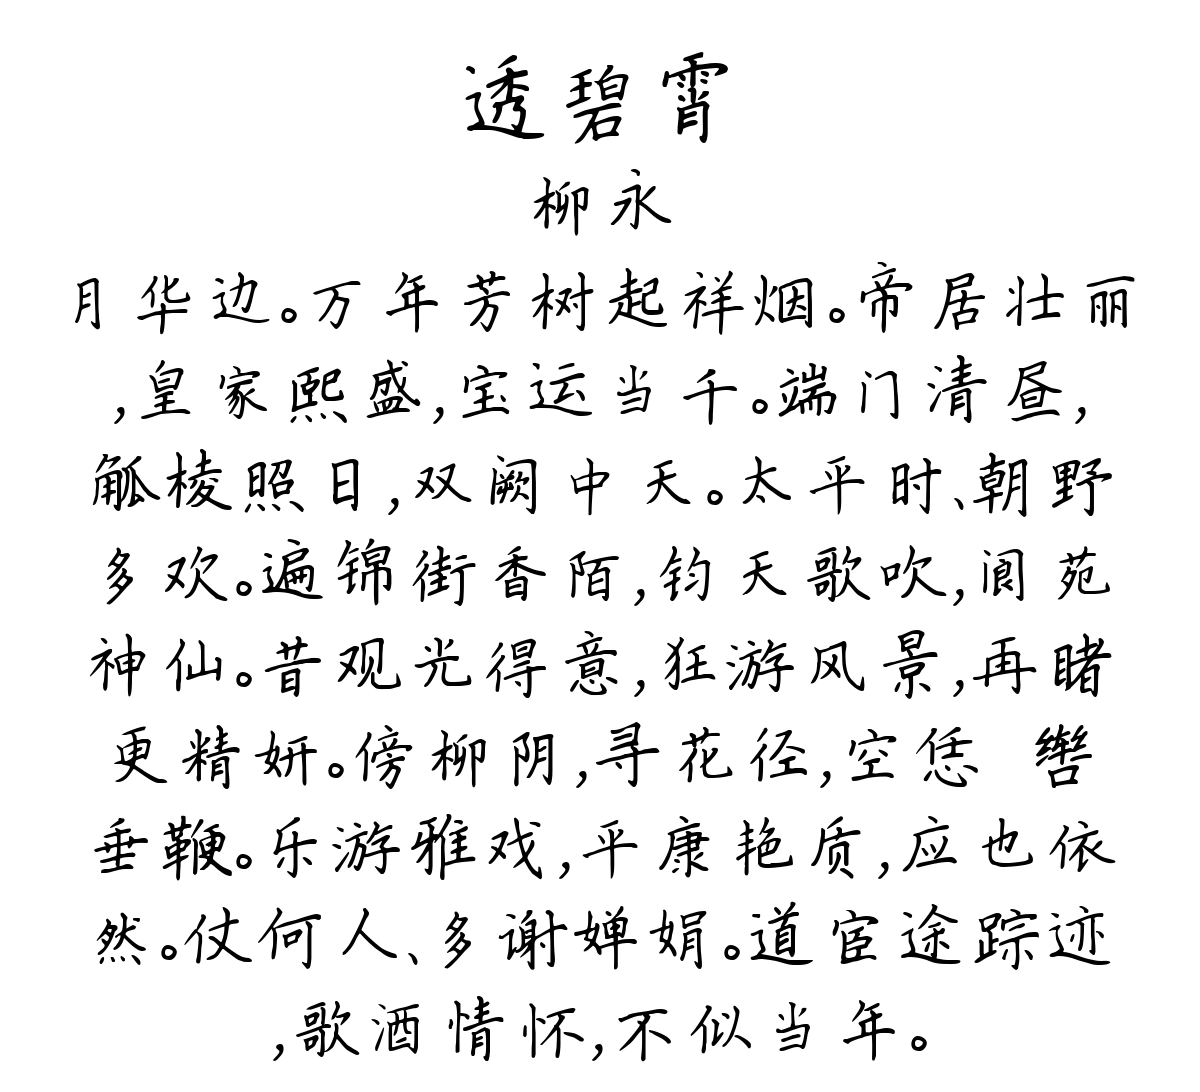 透碧霄
柳永
月华边。万年芳树起祥烟。帝居壮丽
,皇家熙盛,宝运当千。端门清昼,
觚棱照日,双阙中天。太平时、朝野
多欢。遍锦街香陌,钧天歌吹,阆苑
神仙。昔观光得意,狂游风景,再睹
更精妍。傍柳阴,寻花径,空恁 辔
垂鞭。乐游雅戏,平康艳质,应也依
然。仗何人、多谢婵娟。道宦途踪迹
,歌酒情怀,不似当年。